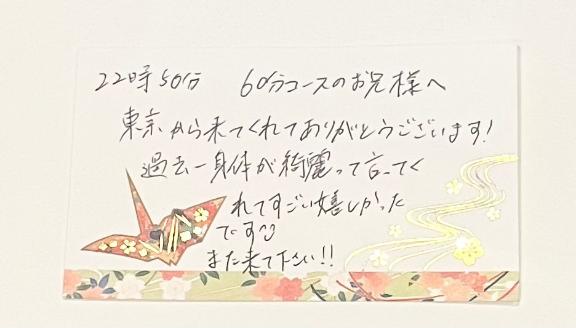 22時50分 60分コースのお兄様へ
東京から来てくれてありがとうございます!
過去一身体が綺麗って言ってく
れてすごい嬉しかった
です
また来て下さい!!